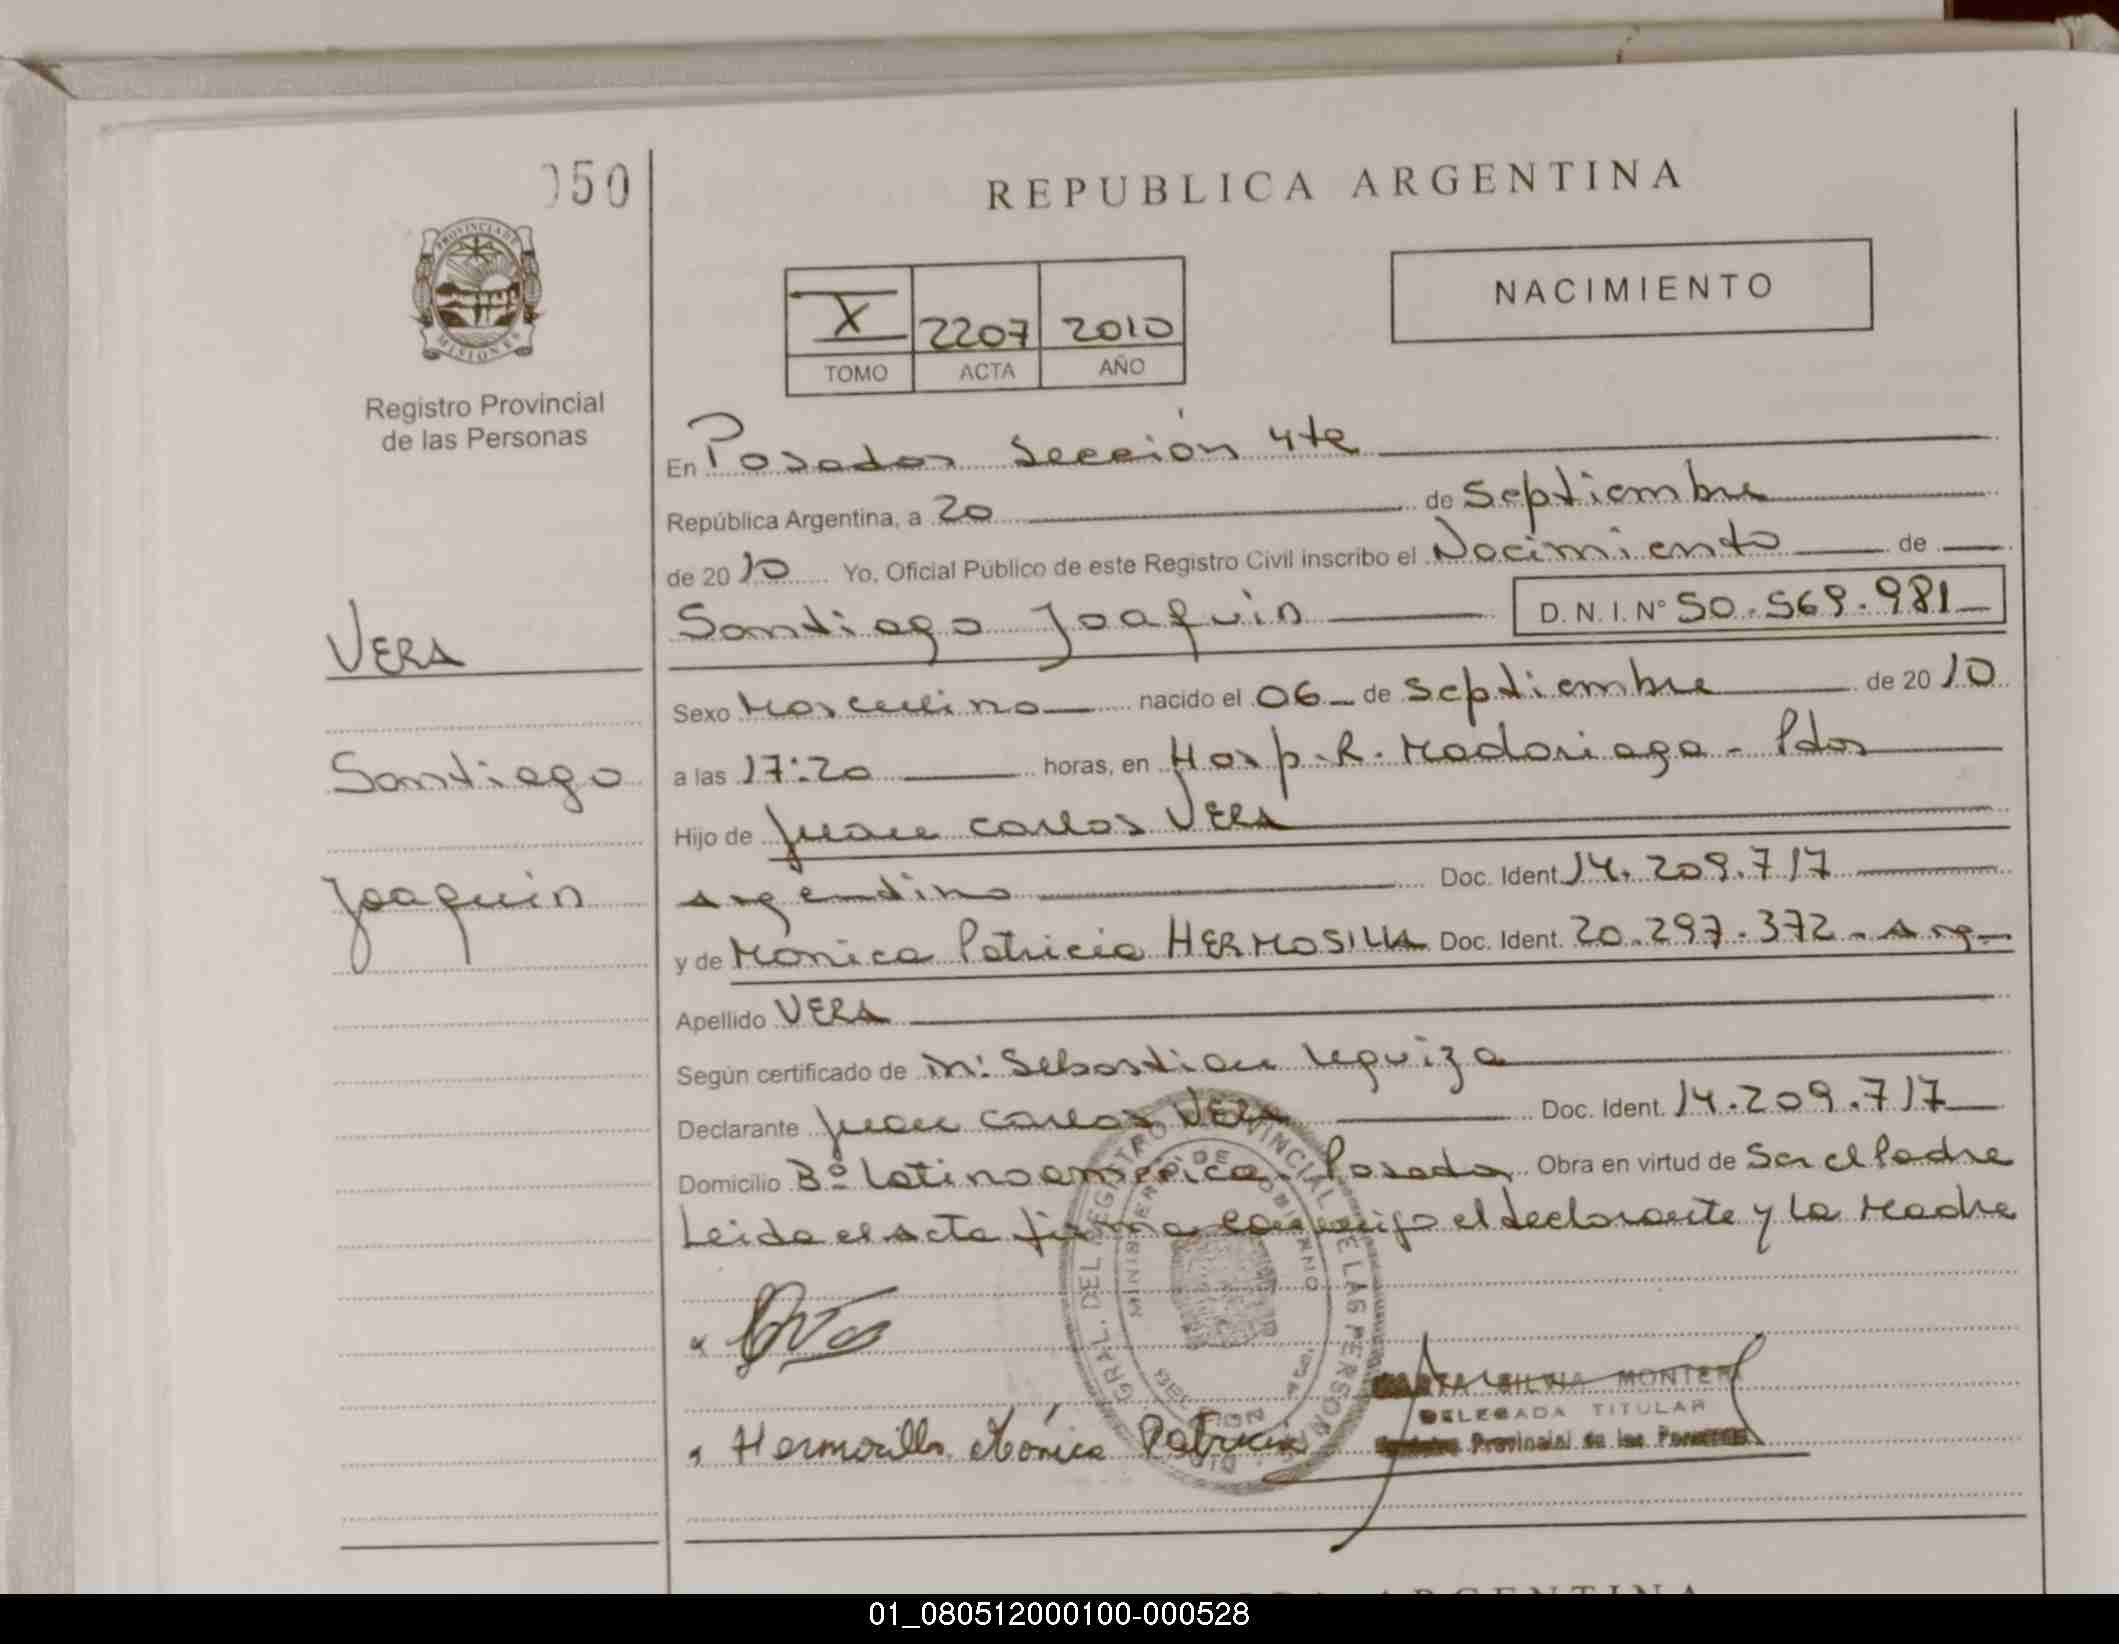 050
REPUBLICA ARGENTINA
PROVINCIA DE
MISIONES
Registro Provincial
de las Personas
X 2207 2010
TOMO ACTA AÑO
NACIMIENTO
En Posadas Sección 4ta
República Argentina, a 20 de Septiembre
de 2010 Yo, Oficial Público de este Registro Civil inscribo el Nacimiento de
Santiago Joaquin D. N. I. N° 50.569.981
VERA
Santiago
Joaquin
Sexo Masculino nacido el 06 de Septiembre de 2010
a las 17:20 horas, en Hosp. R. Madariaga - Pdas
Hijo de Juan Carlos VERA
Argentino Doc. Ident. 14.209.717
y de Mónica Patricia HERMOSILLA Doc. Ident. 20.297.372 - Arg
Apellido VERA
Según certificado de Sebastian
Declarante Juan Carlos VERA Doc. Ident. 14.209.717
Domicilio Bº Latinoamerica. Posadas Obra en virtud de Ser el Padre
Leida el acta firma conmigo el declarante y la Madre
Hermosilla Mónica Patricia
SILVIA MONTER
DELEGADA TITULAR
Provincial de las Personas
GRAL. DEL REGISTRO PROVINCIAL DE LAS PERSONAS
MINISTERIO DE GOBIERNO
REPUBLICA ARGENTINA
01_080512000100-000528